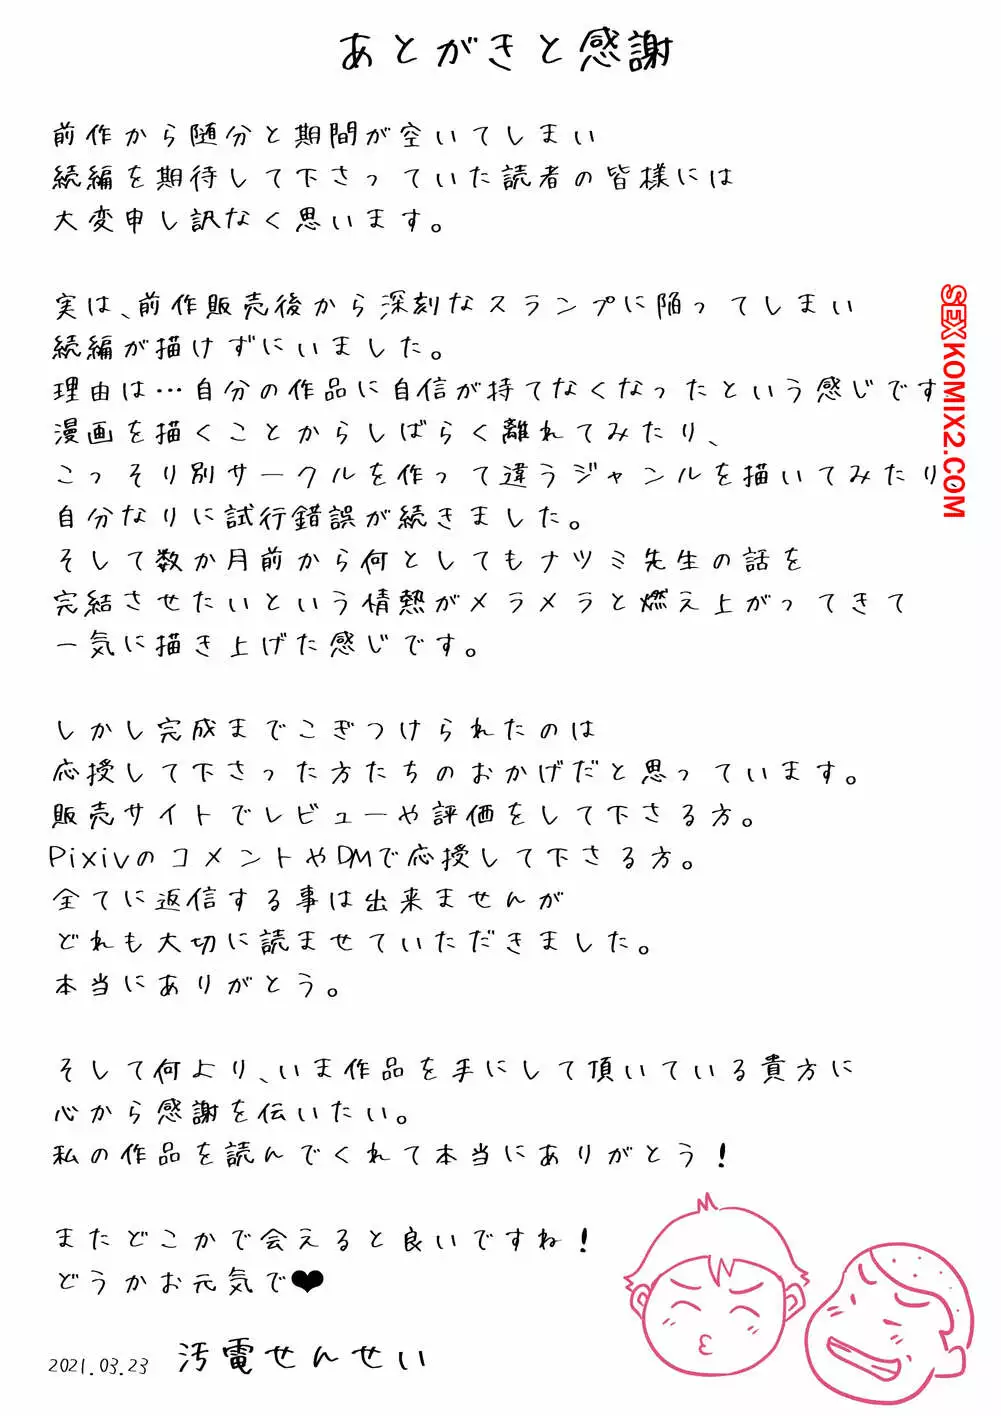 あとがきと感謝
前作から随分と期間が空いてしまい
続編を期待して下さっていた読者の皆様には
大変申し訳なく思います。
実は、前作販売後から深刻なスランプに陥ってしまい
続編が描けずにいました。
理由は…自分の作品に自信が持てなくなったという感じです
漫画を描くことからしばらく離れてみたり、
こっそり別サークルを作って違うジャンルを描いてみたり、
自分なりに試行錯誤が続きました。
そして数か月前から何としてもナツミ先生の話を
完結させたいという情熱がメラメラと燃え上がってきて
一気に描き上げた感じです。
しかし完成までこぎつけられたのは
応援して下さった方たちのおかげだと思っています。
販売サイトでレビューや評価をして下さる方。
PixivのコメントやDMで応援して下さる方。
全てに返信する事は出来ませんが
どれも大切に読ませていただきました。
本当にありがとう。
そして何より、いま作品を手にして頂いている貴方に
心から感謝を伝いたい。
私の作品を読んでくれて本当にありがとう!
またどこかで会えると良いですね!
どうかお元気で❤
2021.03.23 汚電せんせい
SEXKOMIX2.COM